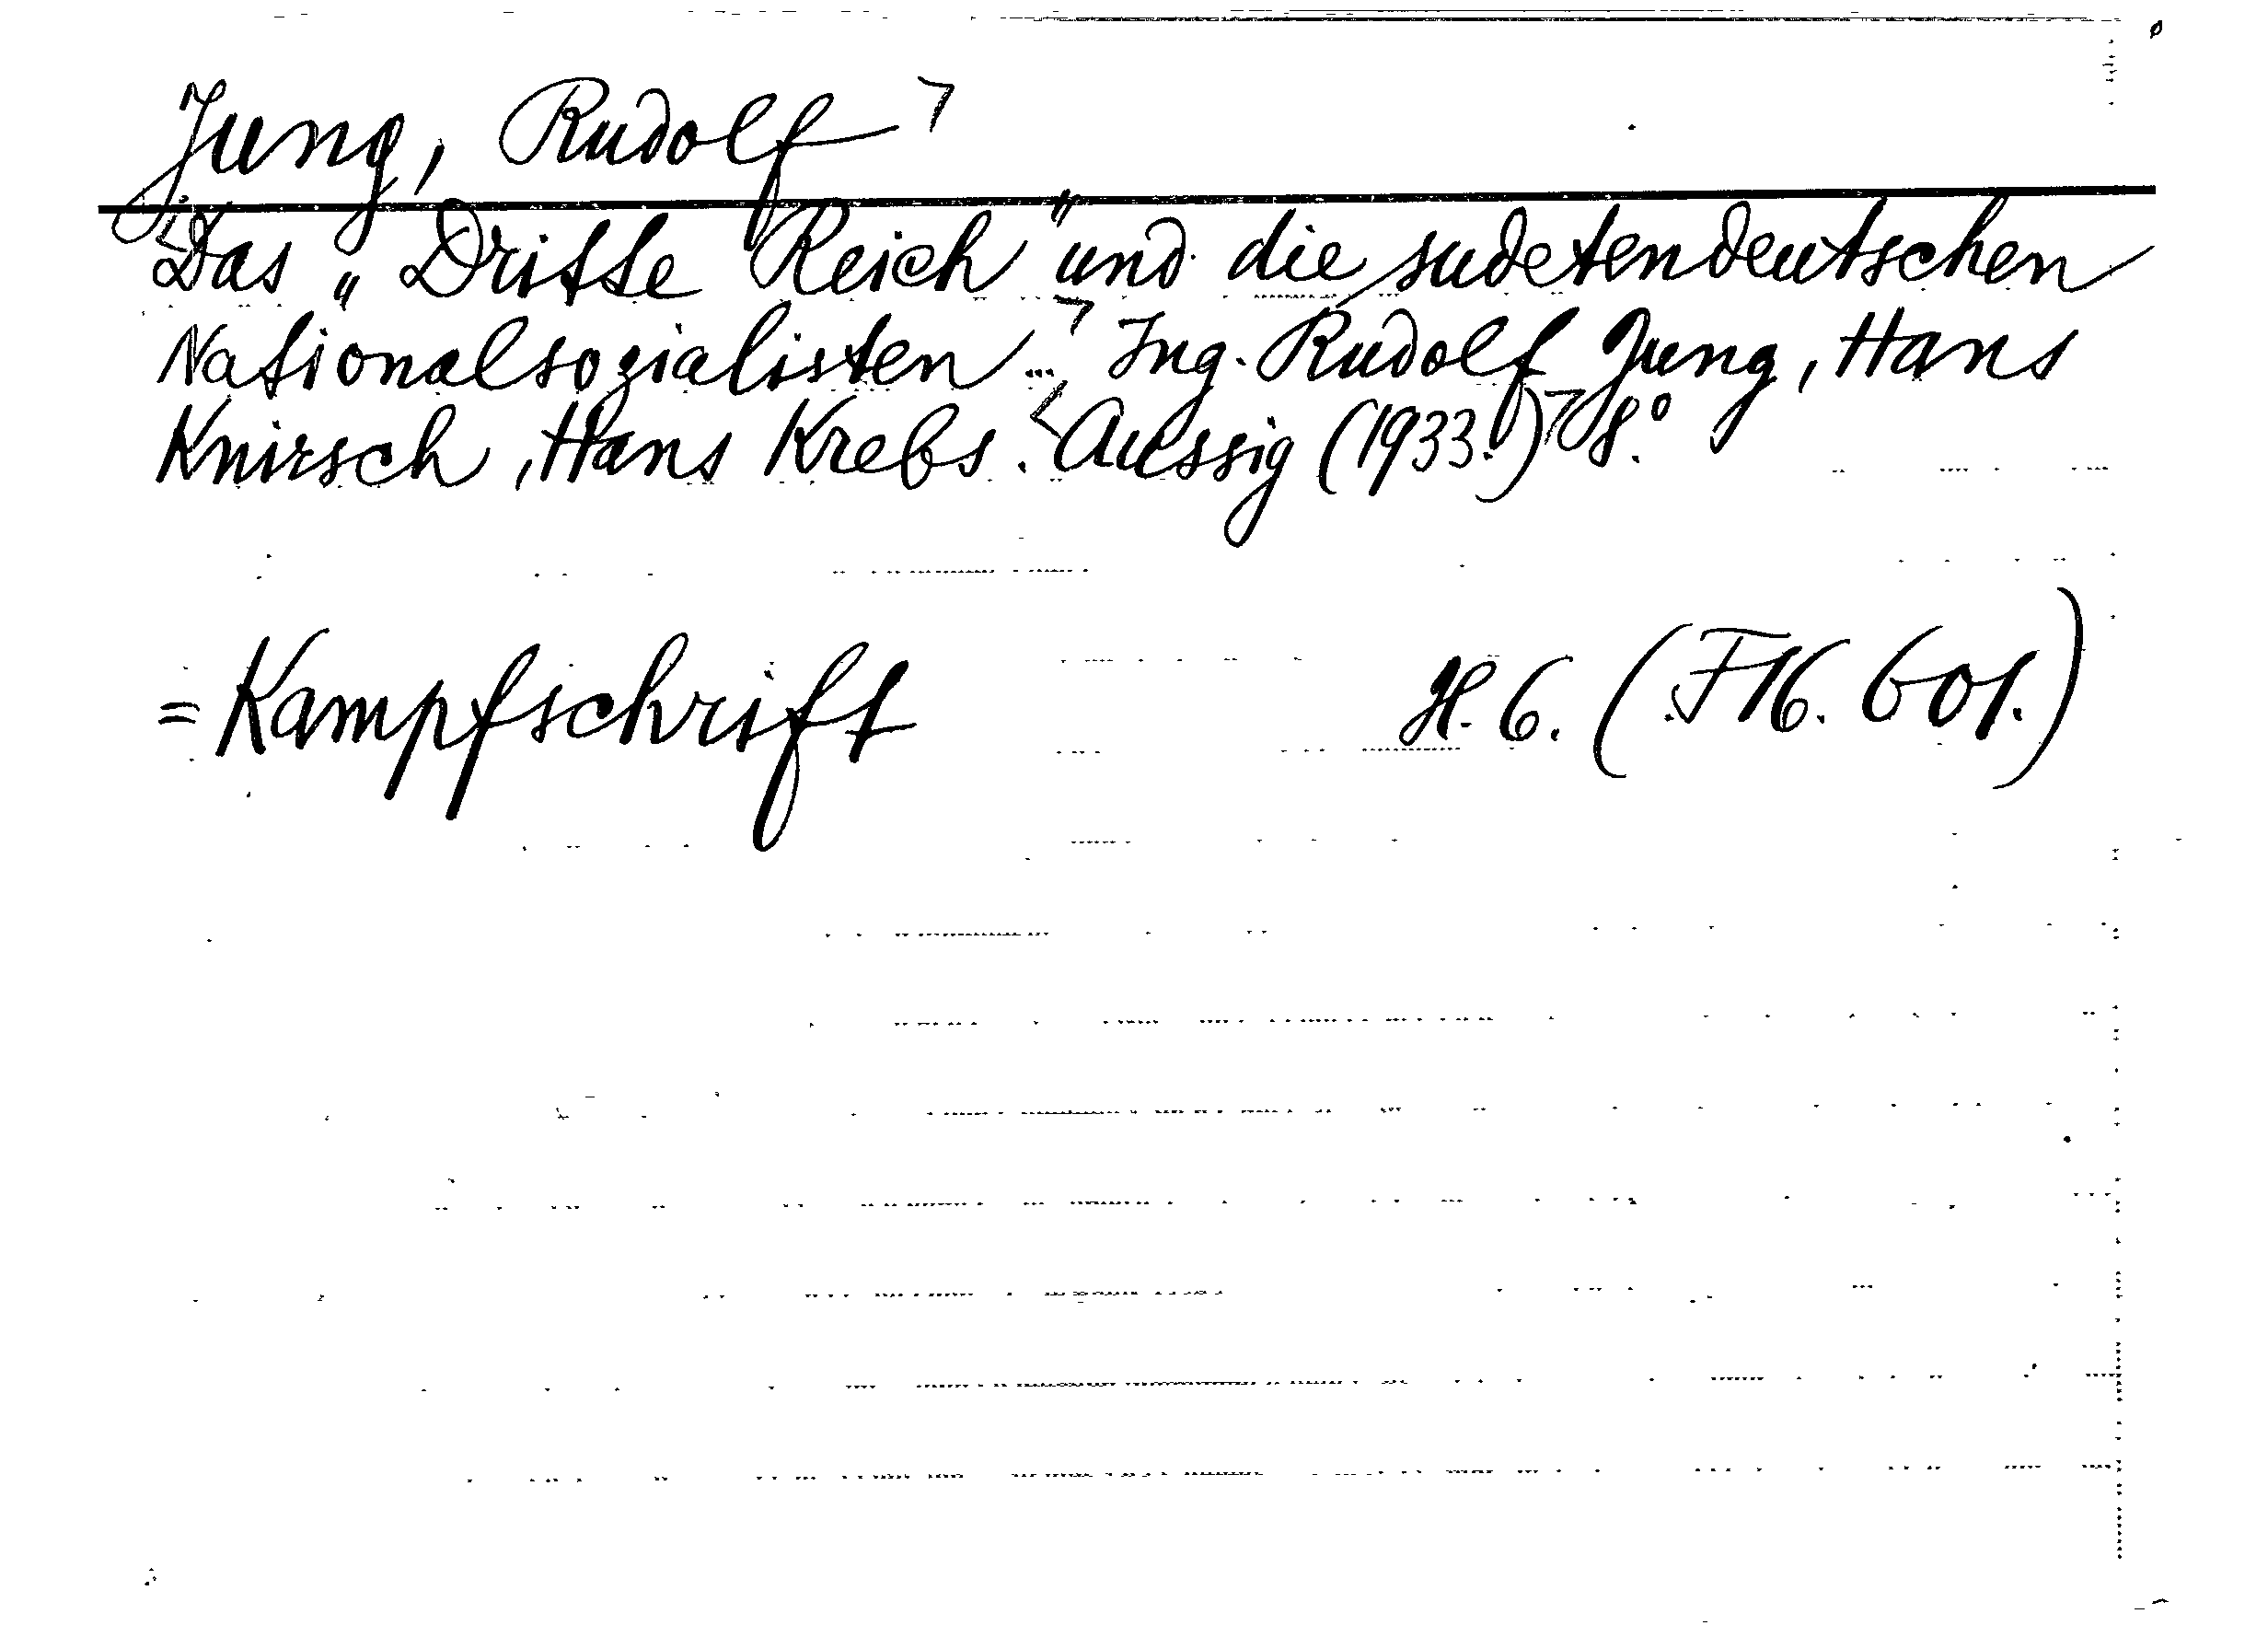 Jung, Rudolf
Das „Dritte Reich" und die sudetendeutschen
Nationalsozialisten ... Ing. Rudolf Jung, Hans
Knirsch, Hans Krebs. Aussig (1933.) 8.°
= Kampfschrift H. 6. (F16. 601.)